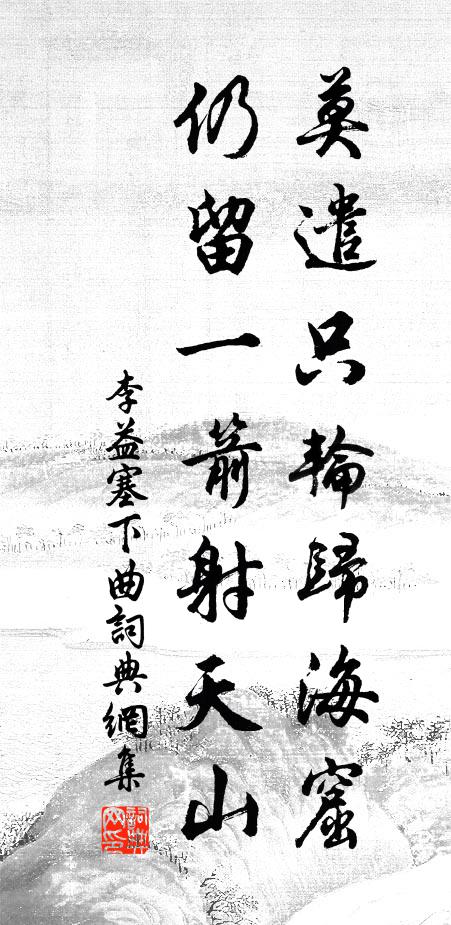 莫遣只輪歸海窟
仍留一箭射天山
李益塞下曲詞典網集